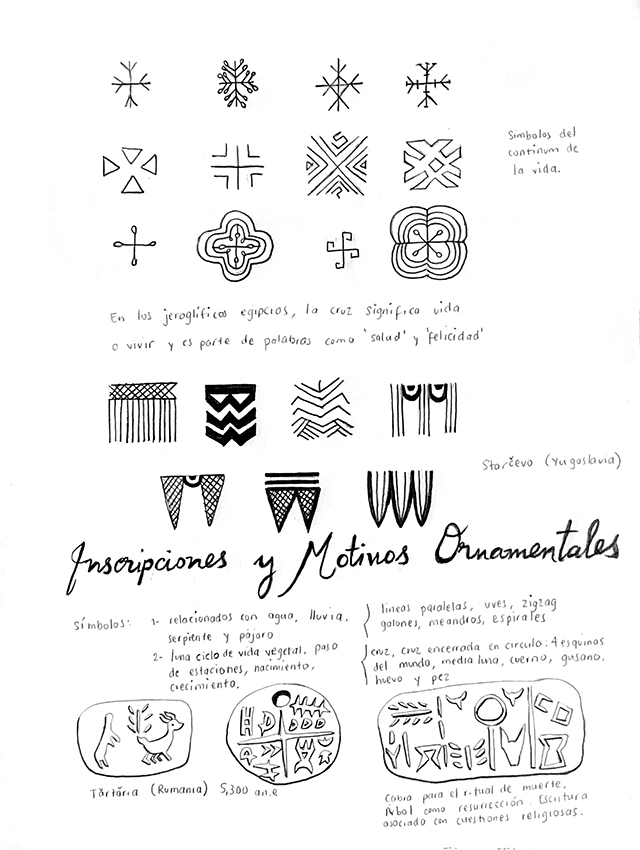 Símbolos del
continum de
la vida.
En los jeroglíficos egipcios, la cruz significa vida
o vivir y es parte de palabras como 'salud' y 'felicidad'
Starčevo (Yugoslavia)
Inscripciones y Motivos Ornamentales
Símbolos: 1- relacionados con agua, lluvia,
serpiente y pájaro
2- luna ciclo de vida vegetal, paso
de estaciones, nacimiento,
crecimiento.
} lineas paralelas, uves, zigzag
galones, meandros, espirales
} cruz, cruz encerrada en circulo: 4 esquinas
del mundo, media luna, cuerno, gusano,
huevo y pez
Tărtăria (Rumania) 5,300 an.e
Cabra para el ritual de muerte.
Árbol como resurrección. Escritura
asociado con cuestiones religiosas.